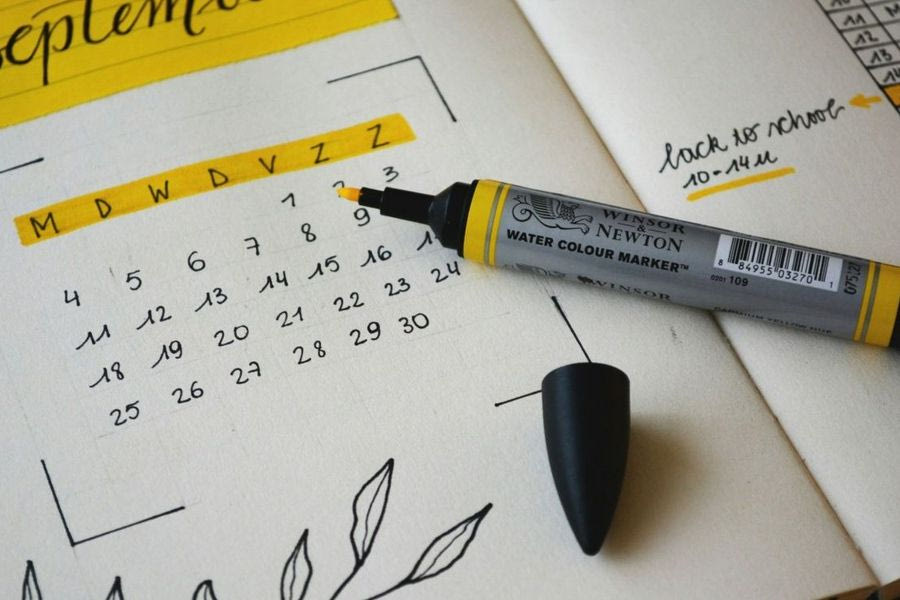 September
M D W D V Z Z
1 2 3
4 5 6 7 8 9
11 12 13 14 15 16 17
18 19 20 21 22 23 24
25 26 27 28 29 30
back to school
10-14u
11
12
13
14
WINSOR
&
NEWTON
WATER COLOUR MARKER™
8 84955 03270 1
0201 109
WINSOR
CADMIUM YELLOW HUE